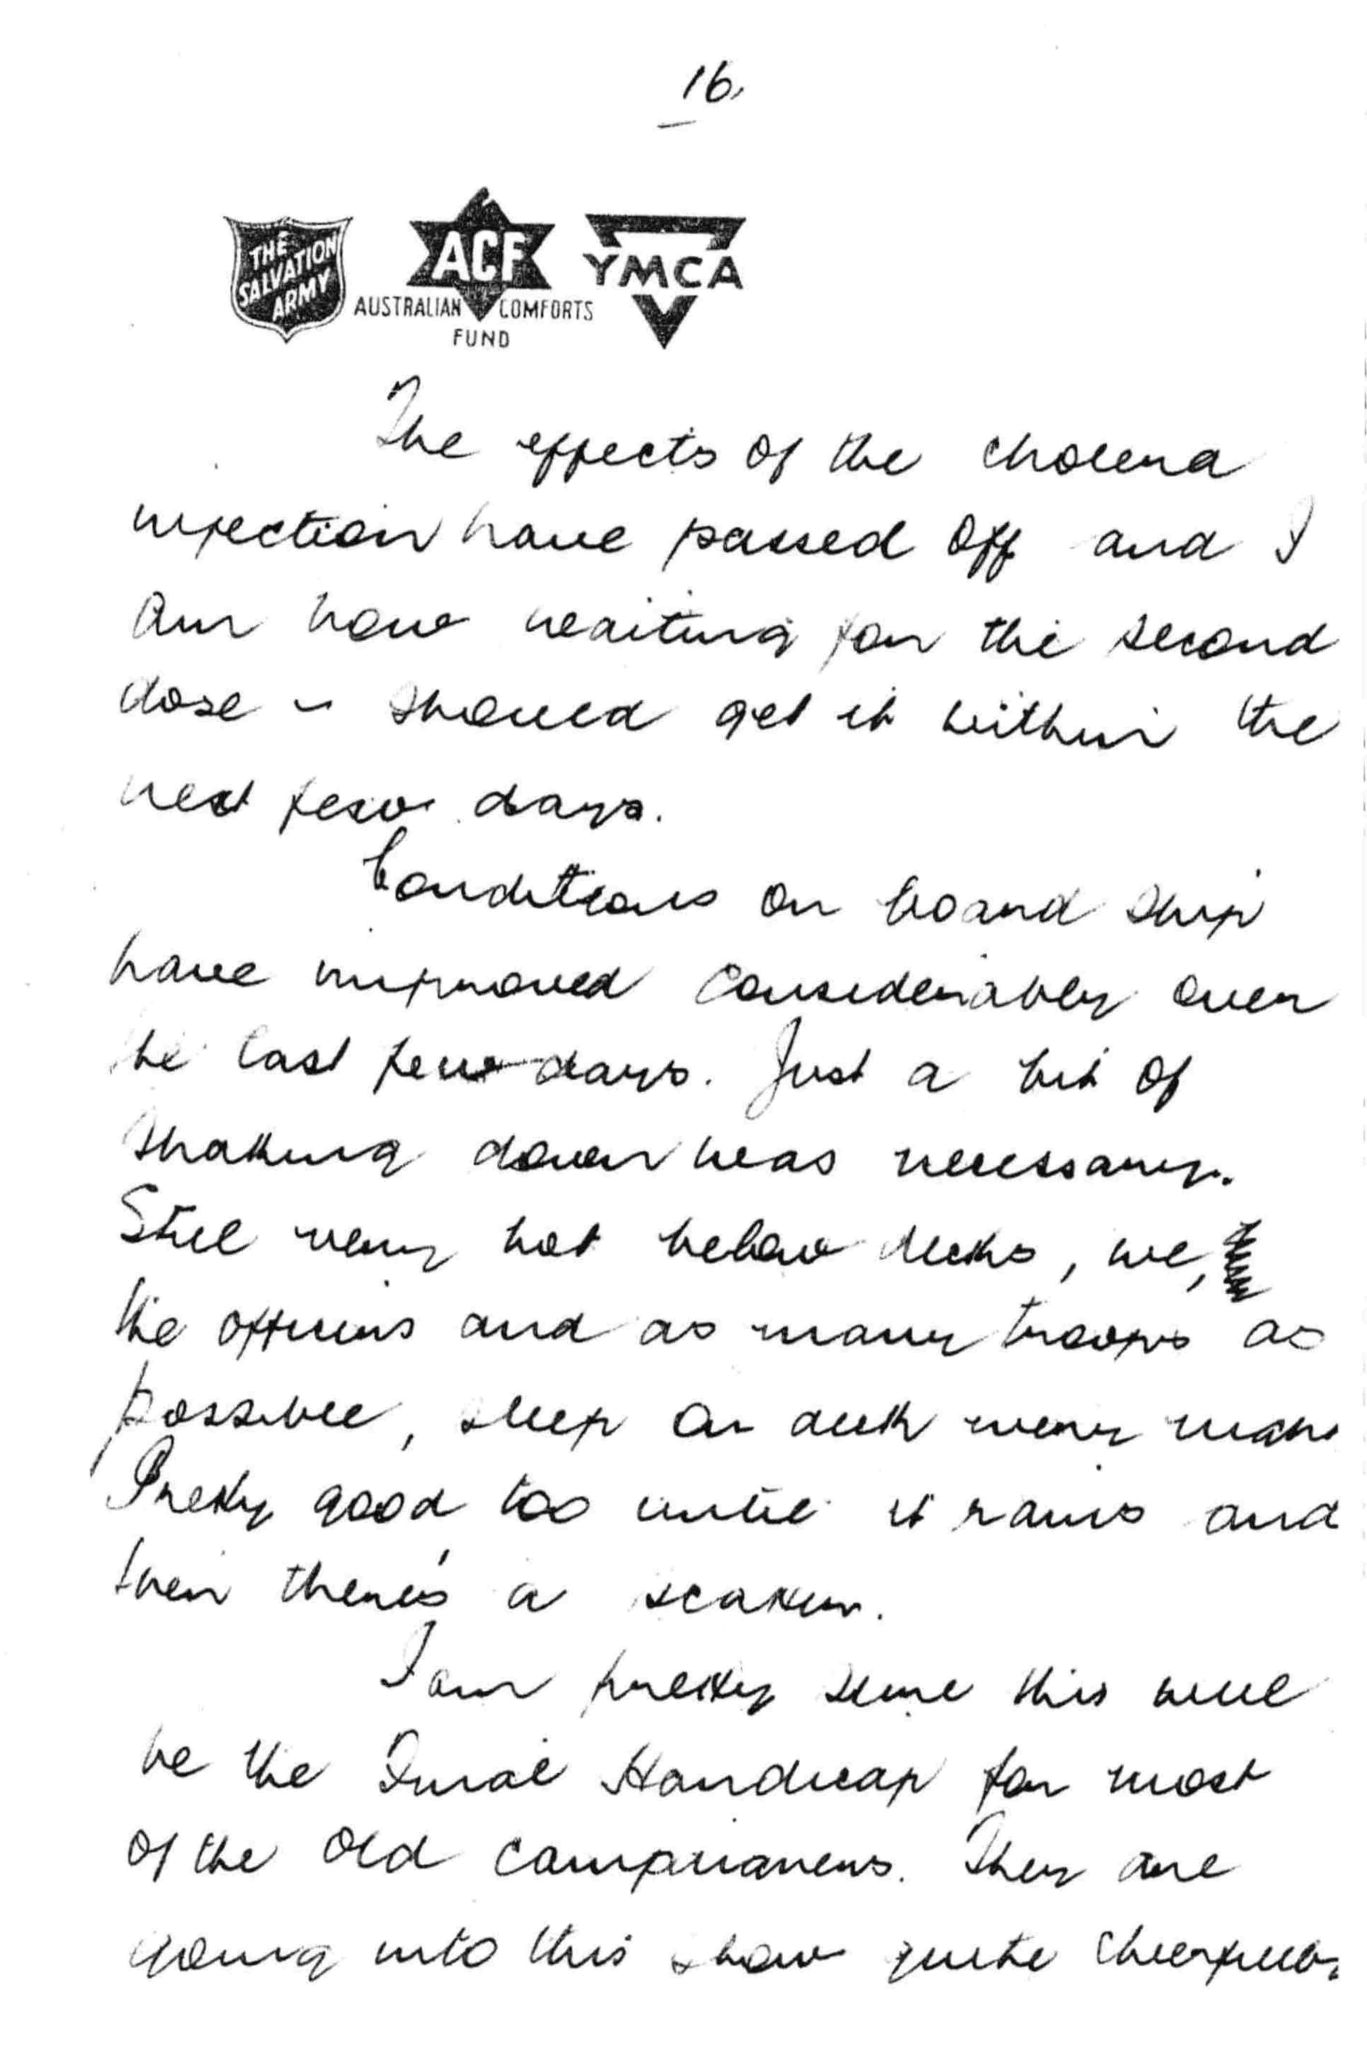 16.
THE SALVATION ARMY
ACF
AUSTRALIAN COMFORTS FUND
YMCA
The effects of the cholera
injection have passed off and I
am now waiting for the second
dose - should get it within the
next few days.
Conditions on board ship
have improved considerably over
the last few days. Just a bit of
shaking down was necessary.
Still very hot below decks, we,
the officers and as many troops as
possible, sleep on deck every night
Pretty good too until it rains and
then there's a scatter.
I am pretty sure this will
be the Final Handicap for most
of the old campaigners. They are
going into this show quite cheerfully,